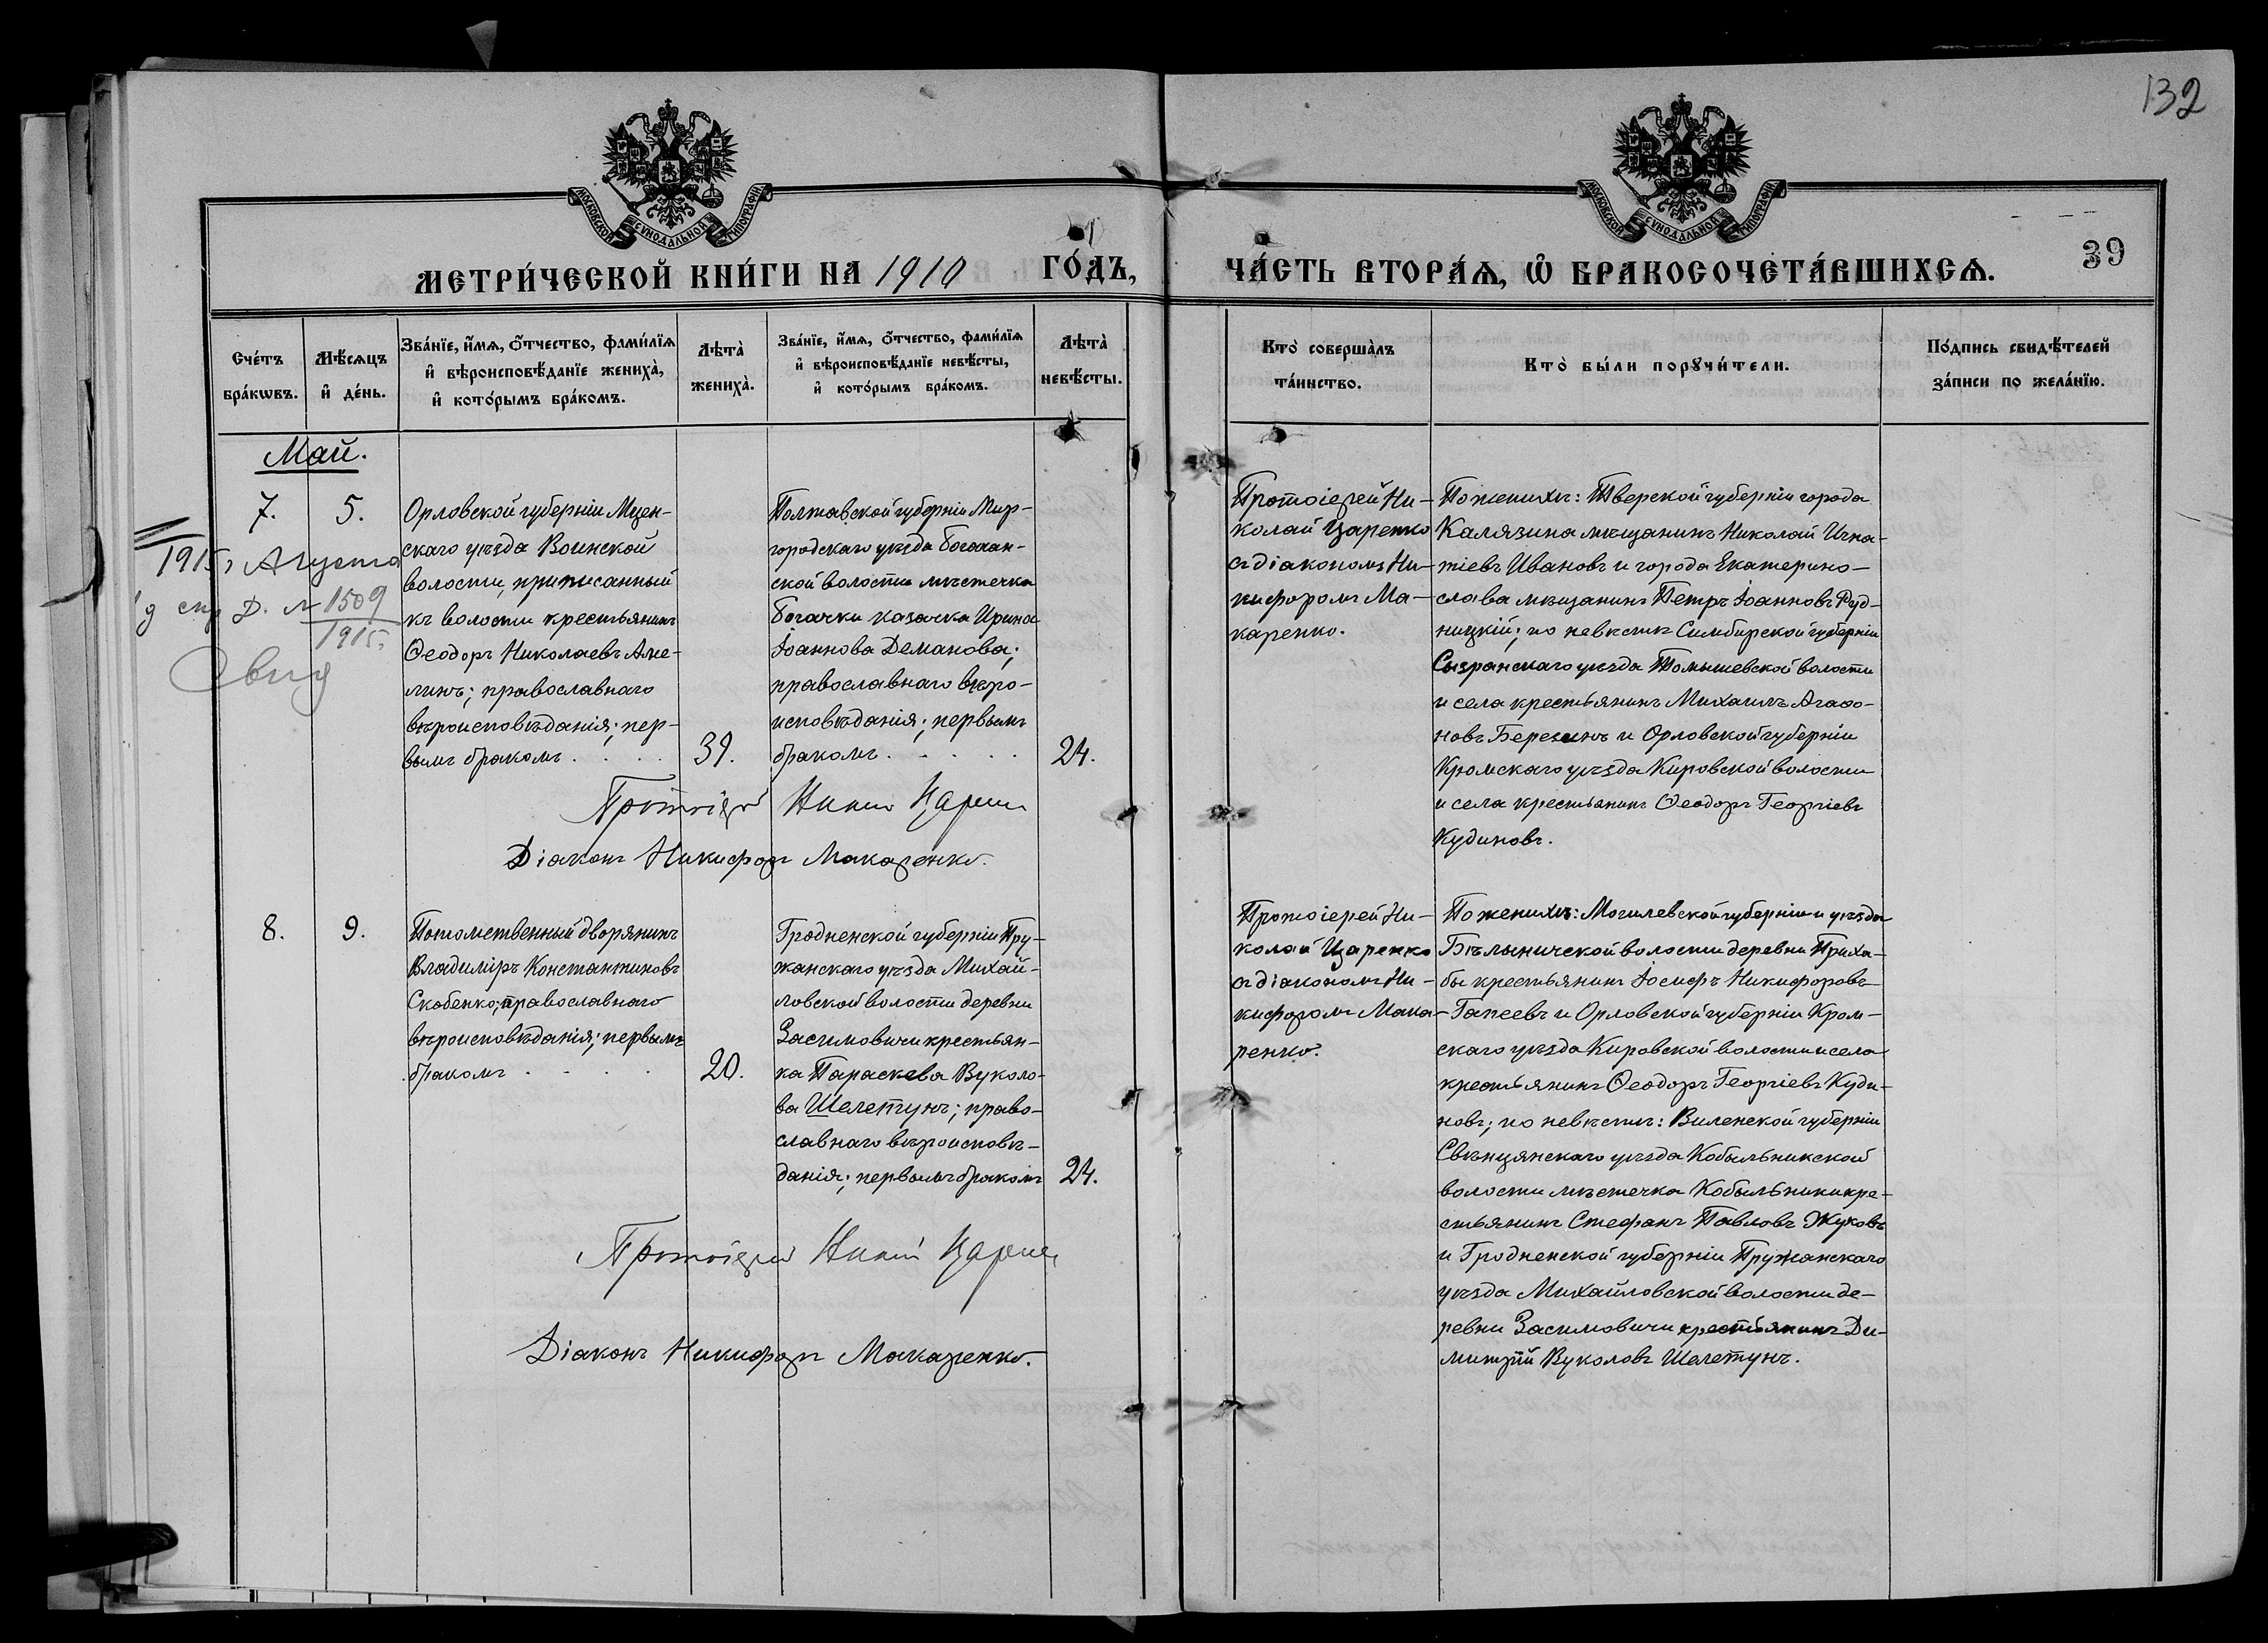 132
МОСКОВСКОЙ СУНОДАЛЬНОЙ ТИПОГРАФІИ
МОСКОВСКОЙ СУНОДАЛЬНОЙ ТИПОГРАФІИ
МЕТРИ́ЧЕСКОЙ КНИ́ГИ НА 1910 ГО́ДЪ,
ЧА́СТЬ ВТОРА́Ѧ, Ѽ БРАКОСОЧЕТА́ВШИХСѦ.
39
Сче́тъ
бра́кѡвъ.
Мѣ́сѧцъ
и҆ де́нь.
Зва́нїе, и҆́мѧ, ѻ҆́тчество, фами́лїѧ
и҆ вѣроисповѣ́данїе жениха̀,
и҆ кото́рымъ бра́комъ.
Лѣта̀
жениха̀.
Зва́нїе, и҆́мѧ, ѻ҆́тчество, фами́лїѧ
и҆ вѣроисповѣ́данїе невѣ́сты,
и҆ кото́рымъ бра́комъ.
Лѣта̀
невѣ́сты.
Кто̀ соверша̀лъ
та́инство.
Кто̀ бы́ли порꙋчи́тели.
По́дпись свидѣ́телей
за́писи по жела́нїю.
Май.
7.
5.
Орловской губерніи Мцен-
скаго уѣзда Воинской
волости, приписанный
къ волости крестьянинъ
Ѳеодоръ Николаевъ Аме-
линъ; православнаго
вѣроисповѣданія; пер-
вымъ бракомъ . . . .
39.
Полтавской губерніи Мир-
городскаго уѣзда Богачан-
ской волости мѣстечка
Богачки казачка Ирина
Іоаннова Деманова;
православнаго вѣро-
исповѣданія; первымъ
бракомъ . . . . .
24.
Протоіерей Ни-
колай Царенко
съ діакономъ Ни-
кифоромъ Ма-
каренко.
По женихѣ: Тверской губерніи города
Калязина мѣщанинъ Николай Игна-
тіевъ Ивановъ и города Екатерино-
слава мѣщанинъ Петръ Іоанновъ Руд-
ницкій; по невѣстѣ Симбирской губерніи
Сызранскаго уѣзда Томышевской волости
и села крестьянинъ Михаилъ Агаѳо-
новъ Березинъ и Орловской губерніи
Кромскаго уѣзда Кировской волости
и села крестьянинъ Ѳеодоръ Георгіевъ
Кудиновъ.
1915 г Августа
Д. № 1509
1915.
Протоіерей Никол Царенко
Діаконъ Никифоръ Макаренко.
8.
9.
Потомственный дворянинъ
Владиміръ Константиновъ
Скобенко; православнаго
вѣроисповѣданія; первымъ
бракомъ . . . .
20.
Гродненской губерніи Пру-
жанскаго уѣзда Михай-
ловской волости деревни
Засимовичи крестьян-
ка Параскева Вуколо-
ва Шелетунъ; право-
славнаго вѣроисповѣ-
данія; первымъ бракомъ
24.
Протоіерей Ни-
колай Царенко
съ діакономъ Ни-
кифоромъ Мака-
ренко.
По женихѣ: Могилевской губерніи и уѣзда
Бѣлыничской волости деревни Приха-
бы крестьянинъ Іосифъ Никифоровъ
Гапеевъ и Орловской губерніи Кром-
скаго уѣзда Кировской волости и села
крестьянинъ Ѳеодоръ Георгіевъ Куди-
новъ; по невѣстѣ: Виленской губерніи
Свѣнцянскаго уѣзда Кобыльникской
волости мѣстечка Кобыльники кре-
стьянинъ Стефанъ Павловъ Жуковъ
и Гродненской губерніи Пружанскаго
уѣзда Михайловской волости де-
ревни Засимовичи крестьянинъ Ди-
митрій Вуколовъ Шелетунъ.
Протоіерей Никол Царенко
Діаконъ Никифоръ Макаренко.